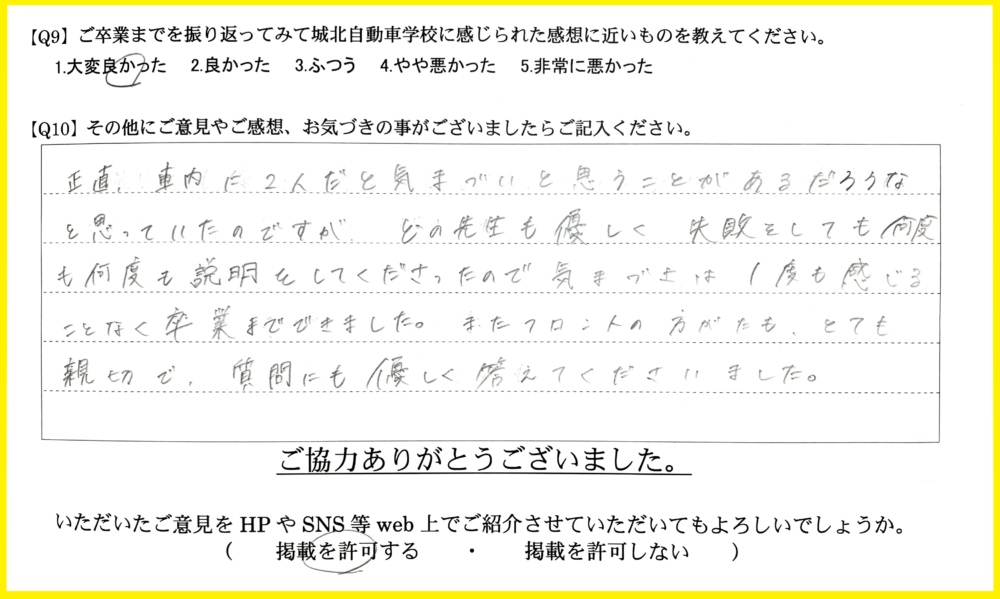 【Q9】ご卒業までを振り返ってみて城北自動車学校に感じられた感想に近いものを教えてください。
1.大変良かった　2.良かった　3.ふつう　4.やや悪かった　5.非常に悪かった
【Q10】その他にご意見やご感想、お気づきの事がございましたらご記入ください。
正直、車内に2人だと気まづいと思うことがあるだろうな
と思っていたのですが、どの先生も優しく 失敗をしても何度
も何度も説明をしてくださったので気まづさは1度も感じる
ことなく卒業までできました。またフロントの方がたも、とても
親切で、質問にも優しく答えてくださいました。
ご協力ありがとうございました。
いただいたご意見をHPやSNS等web上でご紹介させていただいてもよろしいでしょうか。
(　掲載を許可する　・　掲載を許可しない　)